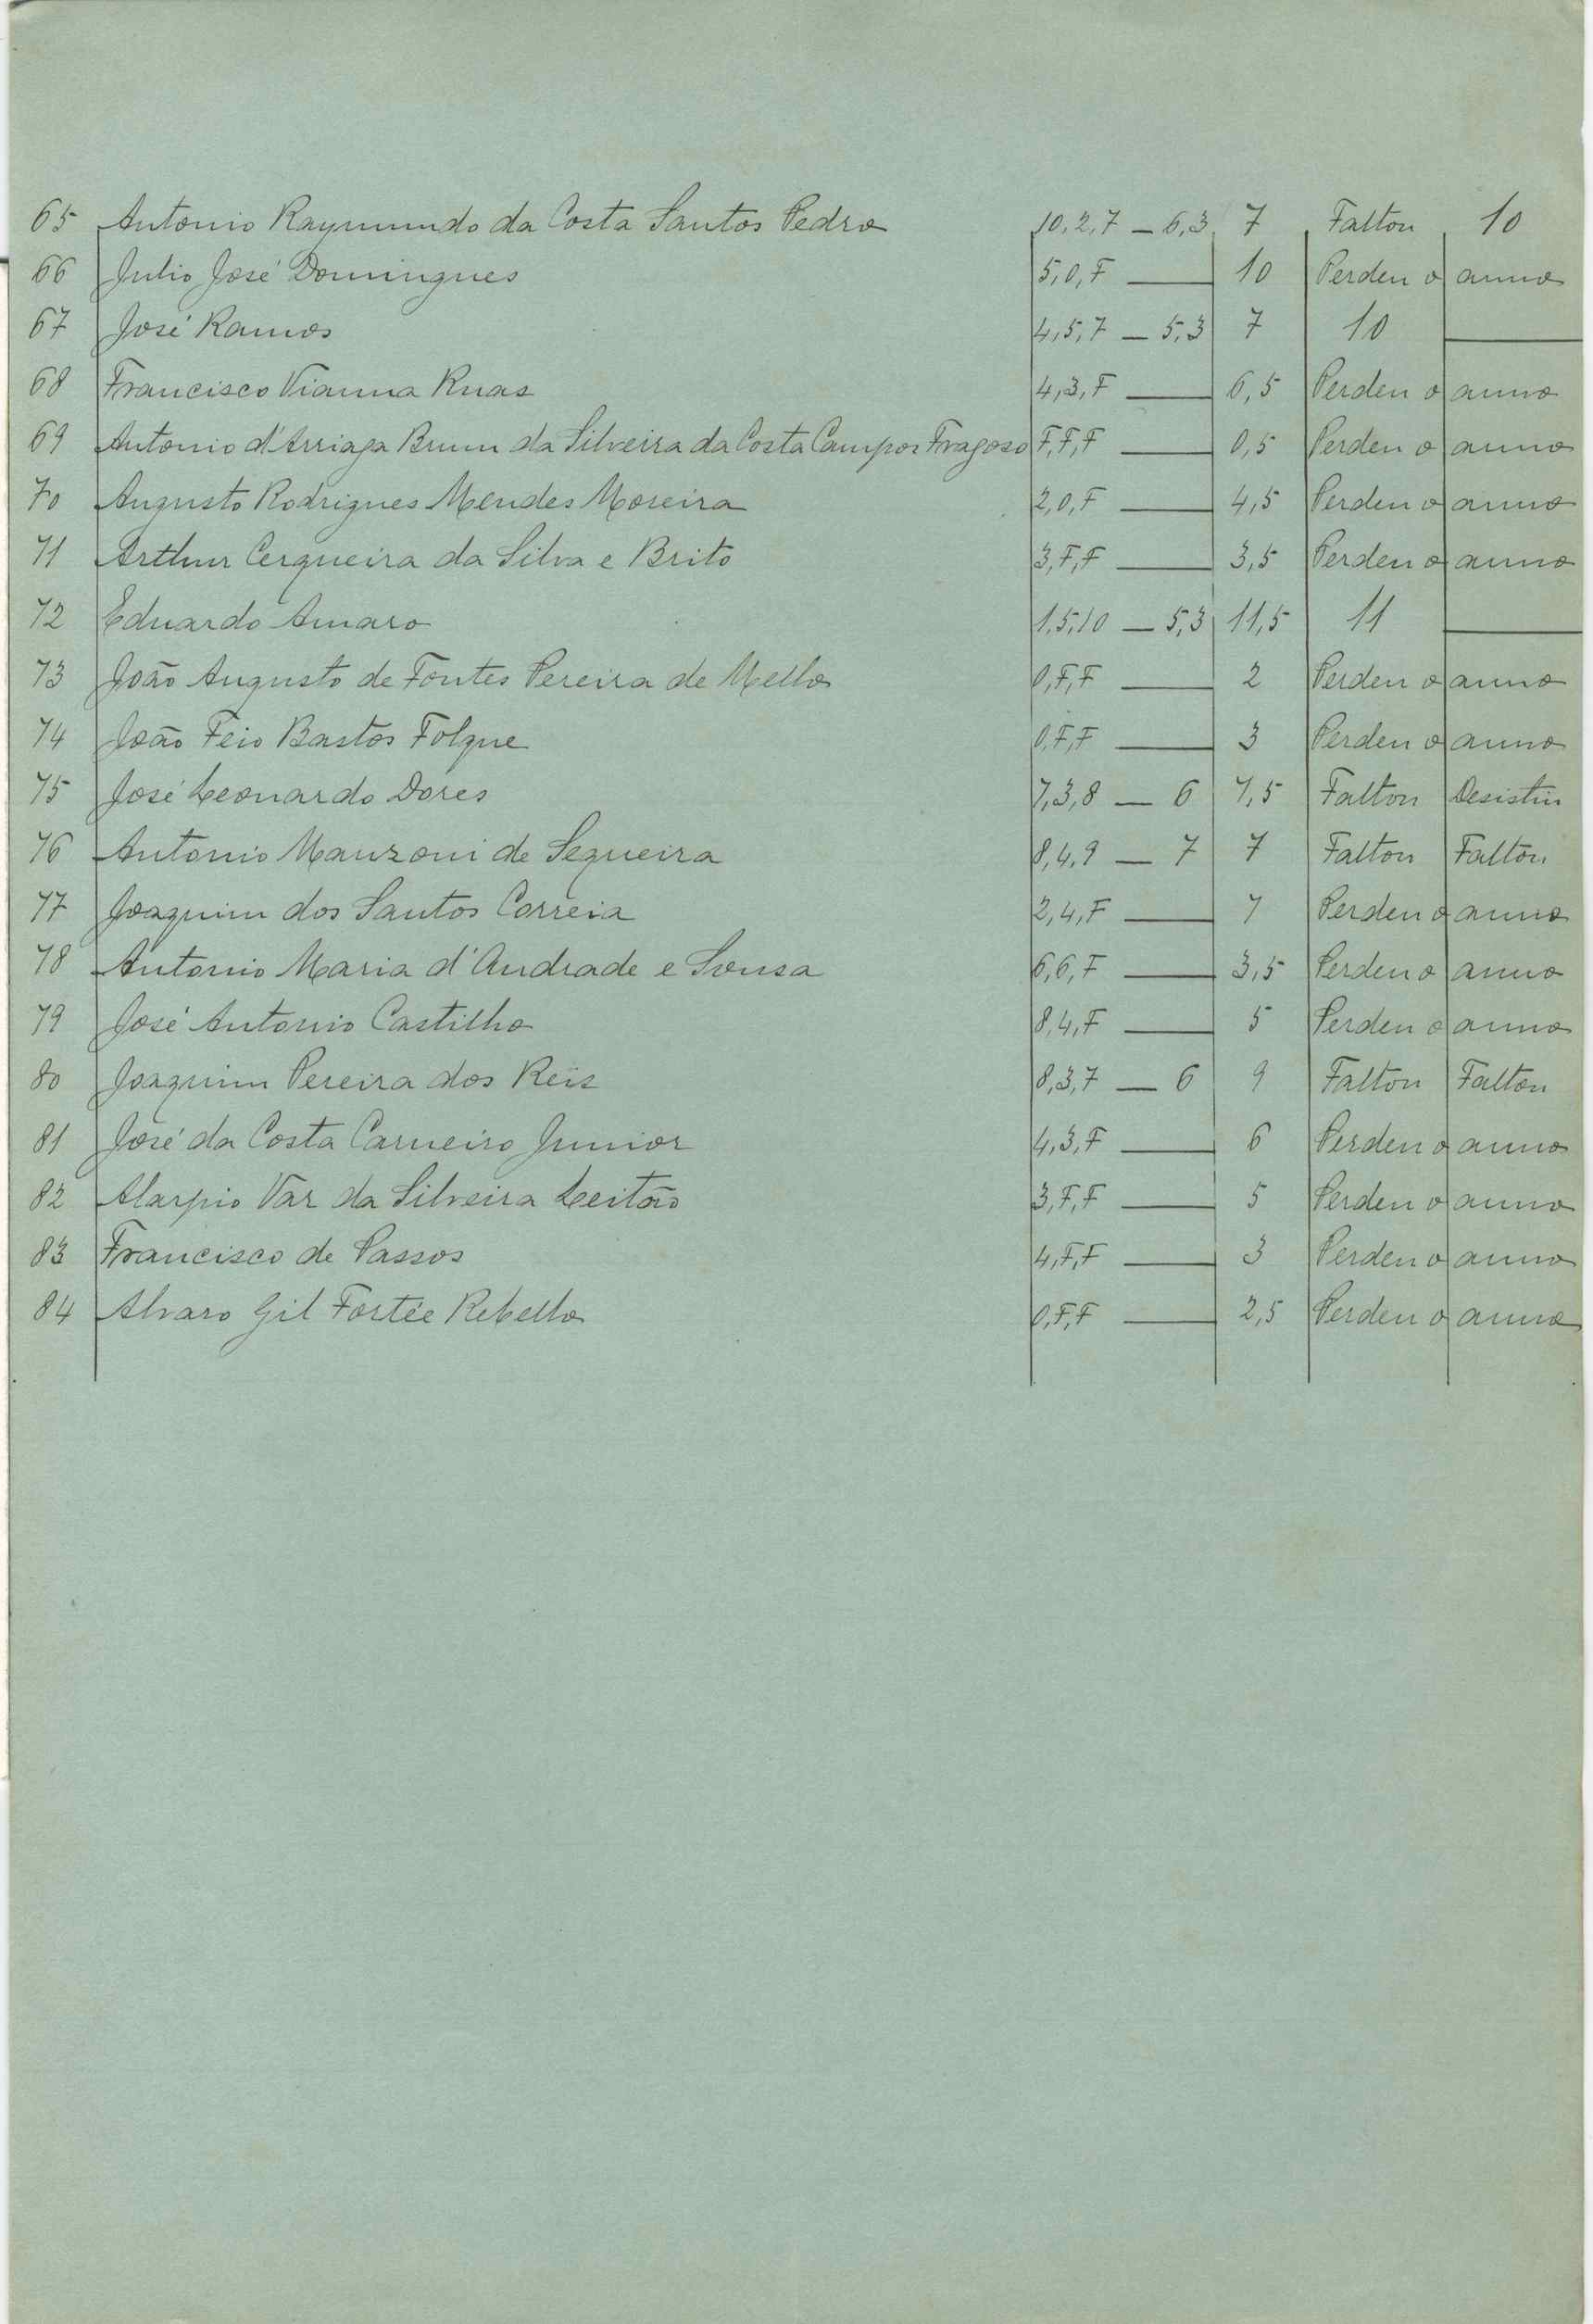 65 Antonio Raymundo da Costa Santos Pedro 10,2,7 — 6,3 7 Faltou 10
66 Julio José Domingues 5,0,F — 10 Perdeu o anno
67 José Ramos 4,5,7 — 5,3 7 10 —
68 Francisco Vianna Ruas 4,3,F — 6,5 Perdeu o anno
69 Antonio d'Arriaga Brum da Silveira da Costa Campos Fragoso F,F,F — 0,5 Perdeu o anno
70 Augusto Rodrigues Mendes Moreira 2,0,F — 4,5 Perdeu o anno
71 Arthur Cerqueira da Silva e Brito 3,F,F — 3,5 Perdeu o anno
72 Eduardo Amaro 1,5,10 — 5,3 11,5 11 —
73 João Augusto de Fontes Pereira de Mello 0,F,F — 2 Perdeu o anno
74 João Feio Bastos Folque 0,F,F — 3 Perdeu o anno
75 José Leonardo Dores 7,3,8 — 6 7,5 Faltou Desistiu
76 Antonio Manzoni de Sequeira 8,4,9 — 7 7 Faltou Faltou
77 Joaquim dos Santos Correia 2,4,F — 7 Perdeu o anno
78 Antonio Maria d'Andrade e Sousa 6,6,F — 3,5 Perdeu o anno
79 José Antonio Castilho 8,4,F — 5 Perdeu o anno
80 Joaquim Pereira dos Reis 8,3,7 — 6 9 Faltou Faltou
81 José da Costa Carneiro Junior 4,3,F — 6 Perdeu o anno
82 Vaz da Silveira Leitão 3,F,F — 5 Perdeu o anno
83 Francisco de Passos 4,F,F — 3 Perdeu o anno
84 Alvaro Gil Fortée Rebello 0,F,F — 2,5 Perdeu o anno